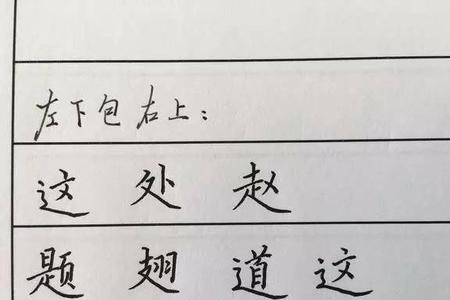 左下包右上：
这处赵
题翅道这